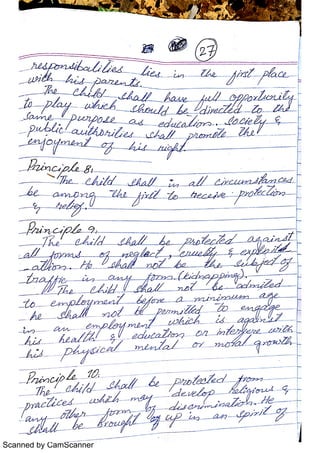 27
responsibalities lies in the first place
with his parents.
The child shall have full opportunity
to play which should be directed to the
same purpose as education. Society &
public authorities shall promote the
enjoyment of his right.
Principle 8:
The child shall in all circumstances
be among the first to receive protection
& relief.
Principle 9.
The child shall be protected against
all forms of neglect, cruelty & exploit
-ation. He shall not be the subject of
traffic in any form. (kidnapping).
The child shall not be admitted
to employment before a minimum age
he shall not be permitted to engage
in an employment which is against
his health & education or interfere with
his physical mental or moral growth
Principle 10:
The child shall be protected from
practices which may develop religious &
any other form of discrimination. He
shall be brought up in an spirit of
Scanned by CamScanner